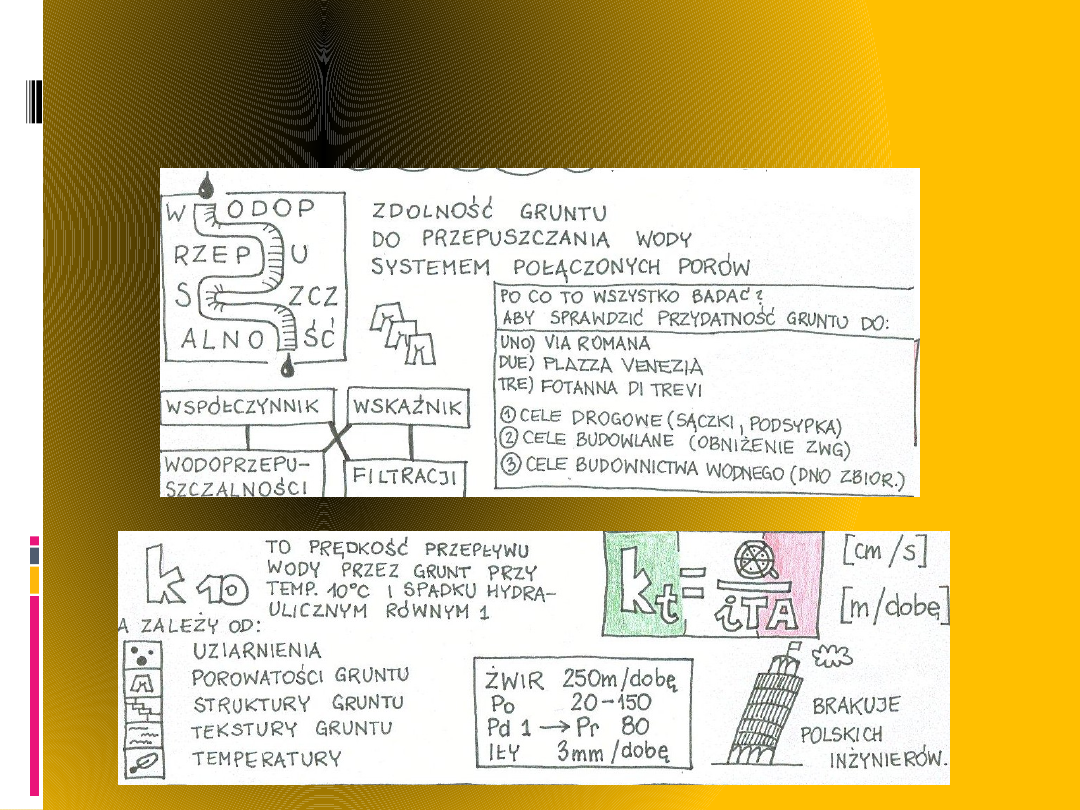 WODOP
RZEPU
SZCZ
ALNOŚĆ
ZDOLNOŚĆ GRUNTU
DO PRZEPUSZCZANIA WODY
SYSTEMEM POŁĄCZONYCH PORÓW
PO CO TO WSZYSTKO BADAĆ?
ABY SPRAWDZIĆ PRZYDATNOŚĆ GRUNTU DO:
UNO) VIA ROMANA
DUE) PLAZZA VENEZIA
TRE) FOTANNA DI TREVI
① CELE DROGOWE (SĄCZKI, PODSYPKA)
② CELE BUDOWLANE (OBNIŻENIE ZWG)
③ CELE BUDOWNICTWA WODNEGO (DNO ZBIOR.)
WSPÓŁCZYNNIK WSKAŹNIK
WODOPRZEPU-
SZCZALNOŚCI
FILTRACJI
k 10
TO PRĘDKOŚĆ PRZEPŁYWU
WODY PRZEZ GRUNT PRZY
TEMP. 10°C I SPADKU HYDRA-
ULICZNYM RÓWNYM 1
A ZALEŻY OD:
UZIARNIENIA
POROWATOŚCI GRUNTU
STRUKTURY GRUNTU
TEKSTURY GRUNTU
TEMPERATURY
kt = Q
iTA
[cm/s]
[m/dobę]
ŻWIR 250m/dobę
Po 20-150
Pd 1 → Pr 80
IŁY 3mm/dobę
BRAKUJE
POLSKICH
INŻYNIERÓW.